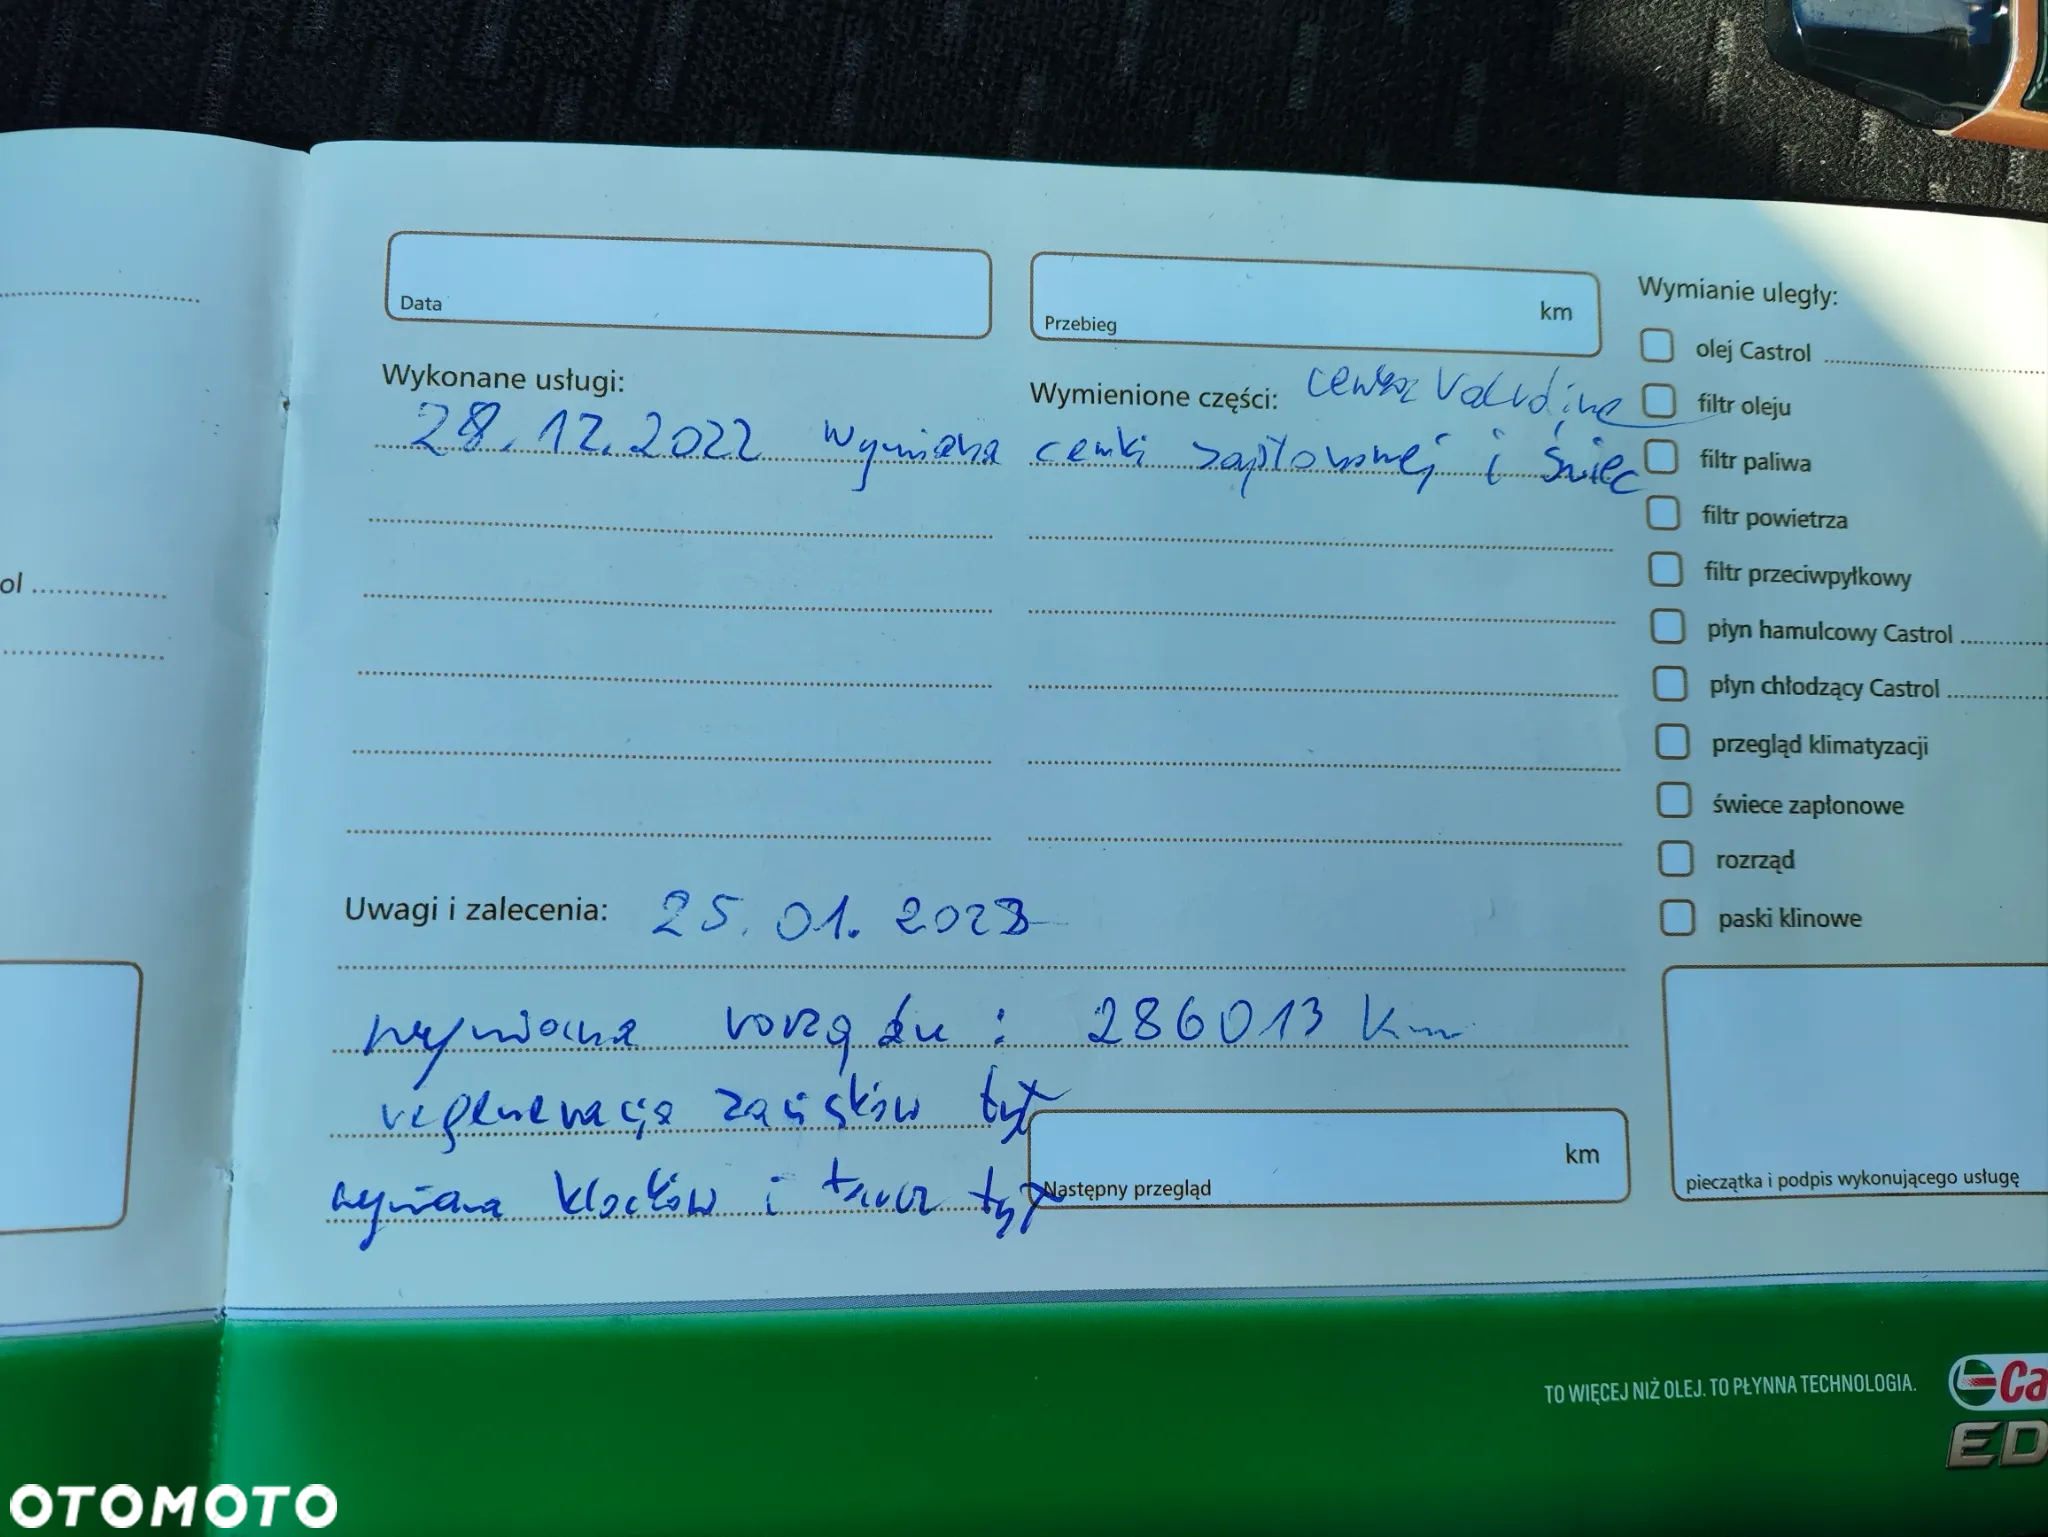 Data
Przebieg km
Wymianie uległy:
olej Castrol
filtr oleju
filtr paliwa
filtr powietrza
filtr przeciwpyłkowy
płyn hamulcowy Castrol
płyn chłodzący Castrol
przegląd klimatyzacji
świece zapłonowe
rozrząd
paski klinowe
Wykonane usługi:
Wymienione części: cewka
28.12.2022 wymiana cewki zapłonowej i świec
Uwagi i zalecenia: 25.01.2023
wymiana rozrządu : 286013 km
regeneracja zacisków tył
wymiana klocków i tarcz tył
Następny przegląd km
pieczątka i podpis wykonującego usługę
ol
TO WIĘCEJ NIŻ OLEJ. TO PŁYNNA TECHNOLOGIA.
Ca
ED
OTOMOTO